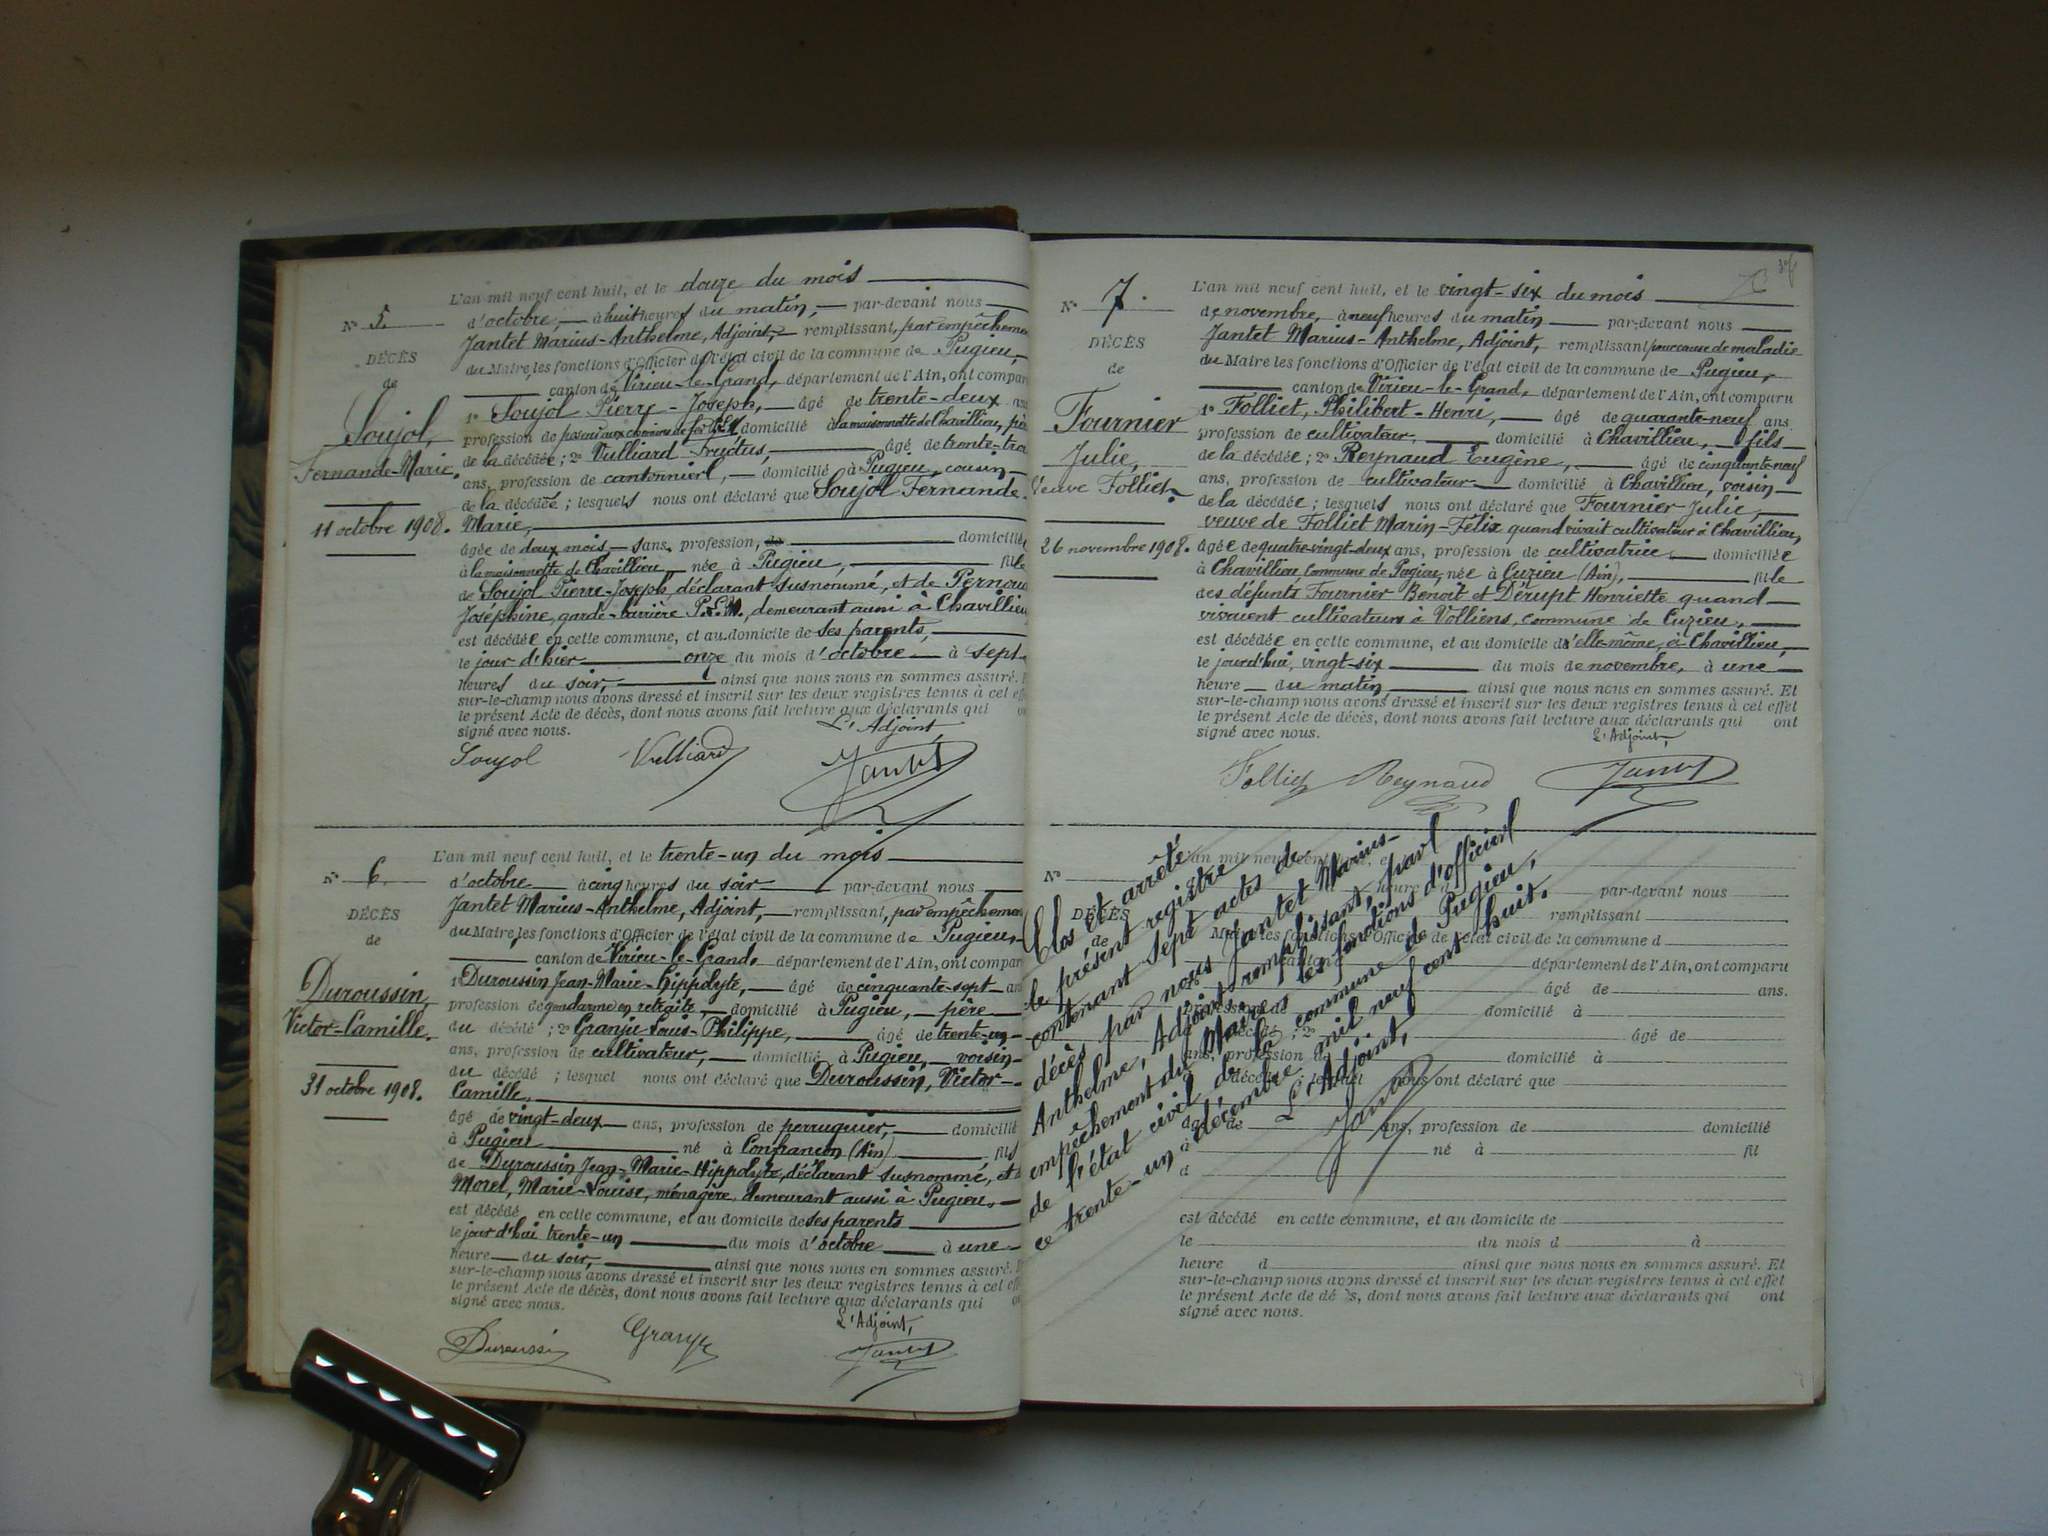 L'an mil neuf cent huit, et le douze du mois
N° 5. d'octobre, à huit heures du matin, par-devant nous
Jantet Marius-Anthelme, Adjoint, remplissant, par empêcheme
DÉCÈS du Maire, les fonctions d'Officier de l'état civil de la commune de Pugieu,
de canton de Virieu-le-Grand, département de l'Ain, ont compar
Soujol, 1° Soujol Pierre-Joseph, âgé de trente-deux ans
profession de chemins de fer domicilié à la maisonnette de Chavillieu, pè
Fernande-Marie. de la décédée; 2° Vulliard Fructus, âgé de trente-tro
ans, profession de cantonnier, domicilié à Pugieu, cousin
de la décédée; lesquels nous ont déclaré que Soujol Fernande-
11 octobre 1908. Marie,
âgée de deux mois, sans profession, domiciliée
à la maisonnette de Chavillieu née à Pugieu, fille
de Soujol Pierre-Joseph, déclarant susnommé, et de Pernou
Joséphine, garde-barrière P.L.M., demeurant aussi à Chavillieu
est décédée en cette commune, et au domicile de ses parents,
le jour d'hier onze du mois d'octobre à sept
heures du soir, ainsi que nous nous en sommes assuré. E
sur-le-champ nous avons dressé et inscrit sur les deux registres tenus à cet eff
le présent Acte de décès, dont nous avons fait lecture aux déclarants qui o
signé avec nous. L'Adjoint,
Soujol Vulliard Jantet
L'an mil neuf cent huit, et le trente-un du mois
N° 6. d'octobre à cinq heures du soir par-devant nous
Jantet Marius-Anthelme, Adjoint, remplissant, par empêcheme
DÉCÈS du Maire, les fonctions d'Officier de l'état civil de la commune de Pugieu,
de canton de Virieu-le-Grand, département de l'Ain, ont compar
Duroussin, 1° Duroussin Jean-Marie-Hippolyte, âgé de cinquante-sept ans
profession de gendarme en retraite, domicilié à Pugieu, père
Victor-Camille. du décédé; 2° Granju Louis-Philippe, âgé de trente-un
ans, profession de cultivateur, domicilié à Pugieu, voisin
du décédé; lesquel nous ont déclaré que Duroussin, Victor-
31 octobre 1908. Camille,
âgé de vingt-deux ans, profession de perruquier, domicilié
à Pugieu né à Confrancon (Ain) fils
de Duroussin Jean-Marie-Hippolyte, déclarant susnommé, et d
Morel, Marie-Louise, ménagère, demeurant aussi à Pugieu,
est décédé en cette commune, et au domicile de ses parents
le jour d'hui trente-un du mois d'octobre à une
heure du soir, ainsi que nous nous en sommes assuré.
sur-le-champ nous avons dressé et inscrit sur les deux registres tenus à cet eff
le présent Acte de décès, dont nous avons fait lecture aux déclarants qui o
signé avec nous. L'Adjoint,
Duroussin Jantet
L'an mil neuf cent huit, et le vingt-six du mois
N° 7. de novembre, à neuf heures du matin par-devant nous
Jantet Marius-Anthelme, Adjoint, remplissant pour cause de maladie
DÉCÈS du Maire les fonctions d'Officier de l'état civil de la commune de Pugieu,
de canton de Virieu-le-Grand, département de l'Ain, ont comparu
Fournier 1° Folliet, Philibert-Henri, âgé de quarante-neuf ans
profession de cultivateur, domicilié à Chavillieu, fils
Julie, de la décédée; 2° Reynaud Eugène, âgé de cinquante-neuf
Veuve Folliet. ans, profession de cultivateur domicilié à Chavillieu, voisin
de la décédée; lesquels nous ont déclaré que Fournier Julie,
veuve de Folliet Marin-Félix quand vivait cultivateur à Chavillieu,
26 novembre 1908. âgée de quatre-vingt-deux ans, profession de cultivatrice domiciliée
à Chavillieu, commune de Pugieu, née à Cuzieu (Ain), fille
des défunts Fournier Benoit et Dérupt Henriette quand
vivaient cultivateurs à Volliens, commune de Cuzieu,
est décédée en cette commune, et au domicile d'elle-même, à Chavillieu,
le jourd'hui, vingt-six du mois de novembre, à une
heure du matin ainsi que nous nous en sommes assuré. Et
sur-le-champ nous avons dressé et inscrit sur les deux registres tenus à cet effet
le présent Acte de décès, dont nous avons fait lecture aux déclarants qui ont
signé avec nous. L'Adjoint,
Folliet Reynaud Jantet
Clos et arrêté
le présent registre
contenant sept actes de
décès par nous Jantet Marius-
Anthelme, Adjoint remplissant, par
empêchement du Maire les fonctions d'officier
de l'état civil de la commune de Pugieu,
ce trente-un décembre mil neuf cent huit.
L'Adjoint,
Jantet
N°
DÉCÈS
de
par-devant nous
remplissant
Maire les fonctions d'Officier de l'état civil de la commune d
département de l'Ain, ont comparu
âgé de ans.
profession de domicilié à
âgé de
ans, profession de domicilié à
décédé; lesquel nous ont déclaré que
âgé de ans, profession de domicilié
à né à fil
d
est décédé en cette commune, et au domicile de
le du mois d à
heure d ainsi que nous nous en sommes assuré. Et
sur-le-champ nous avons dressé et inscrit sur les deux registres tenus à cet effet
le présent Acte de décès, dont nous avons fait lecture aux déclarants qui ont
signé avec nous.